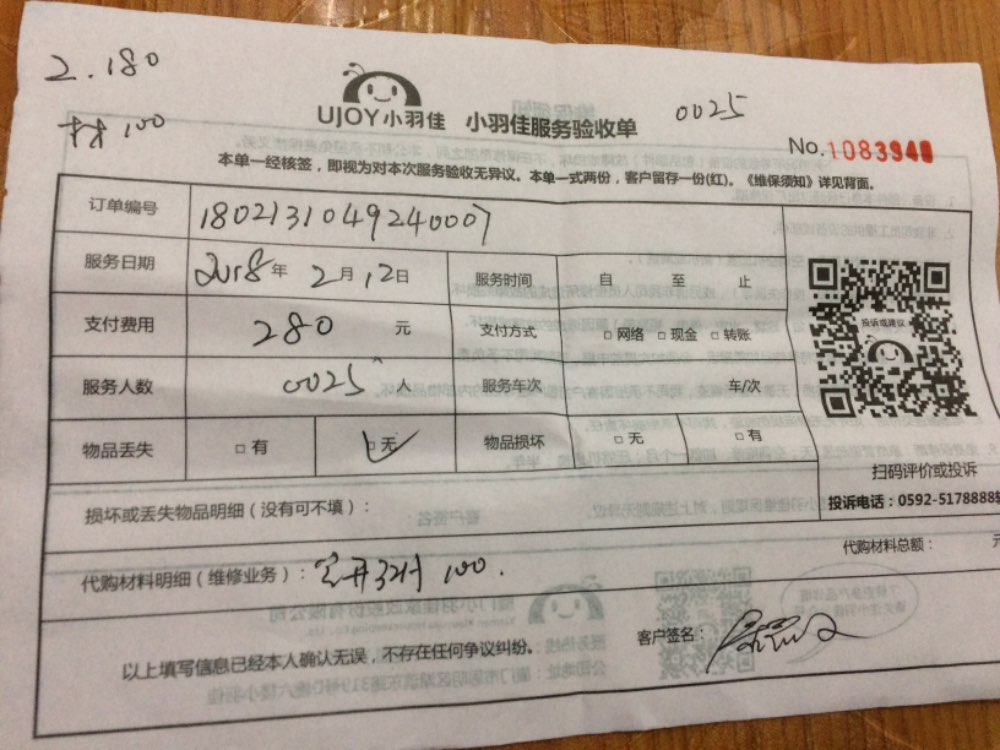 2.180
材 100
UJOY小羽佳 小羽佳服务验收单
0025
No.1083940
本单一经核签，即视为对本次服务验收无异议。本单一式两份，客户留存一份(红)。《维保须知》详见背面。
订单编号 1802131049240007
服务日期 2018年 2月12日 服务时间 自 至 止
支付费用 280 元 支付方式 □网络 □现金 □转账
服务人数 0025 人 服务车次 车/次
物品丢失 □有 □无 物品损坏 □无 □有
投诉或建议
扫码评价或投诉
投诉电话：0592-5178888
损坏或丢失物品明细（没有可不填）：
代购材料总额： 元
代购材料明细（维修业务）： 100.
客户签名：
以上填写信息已经本人确认无误，不存在任何争议纠纷。